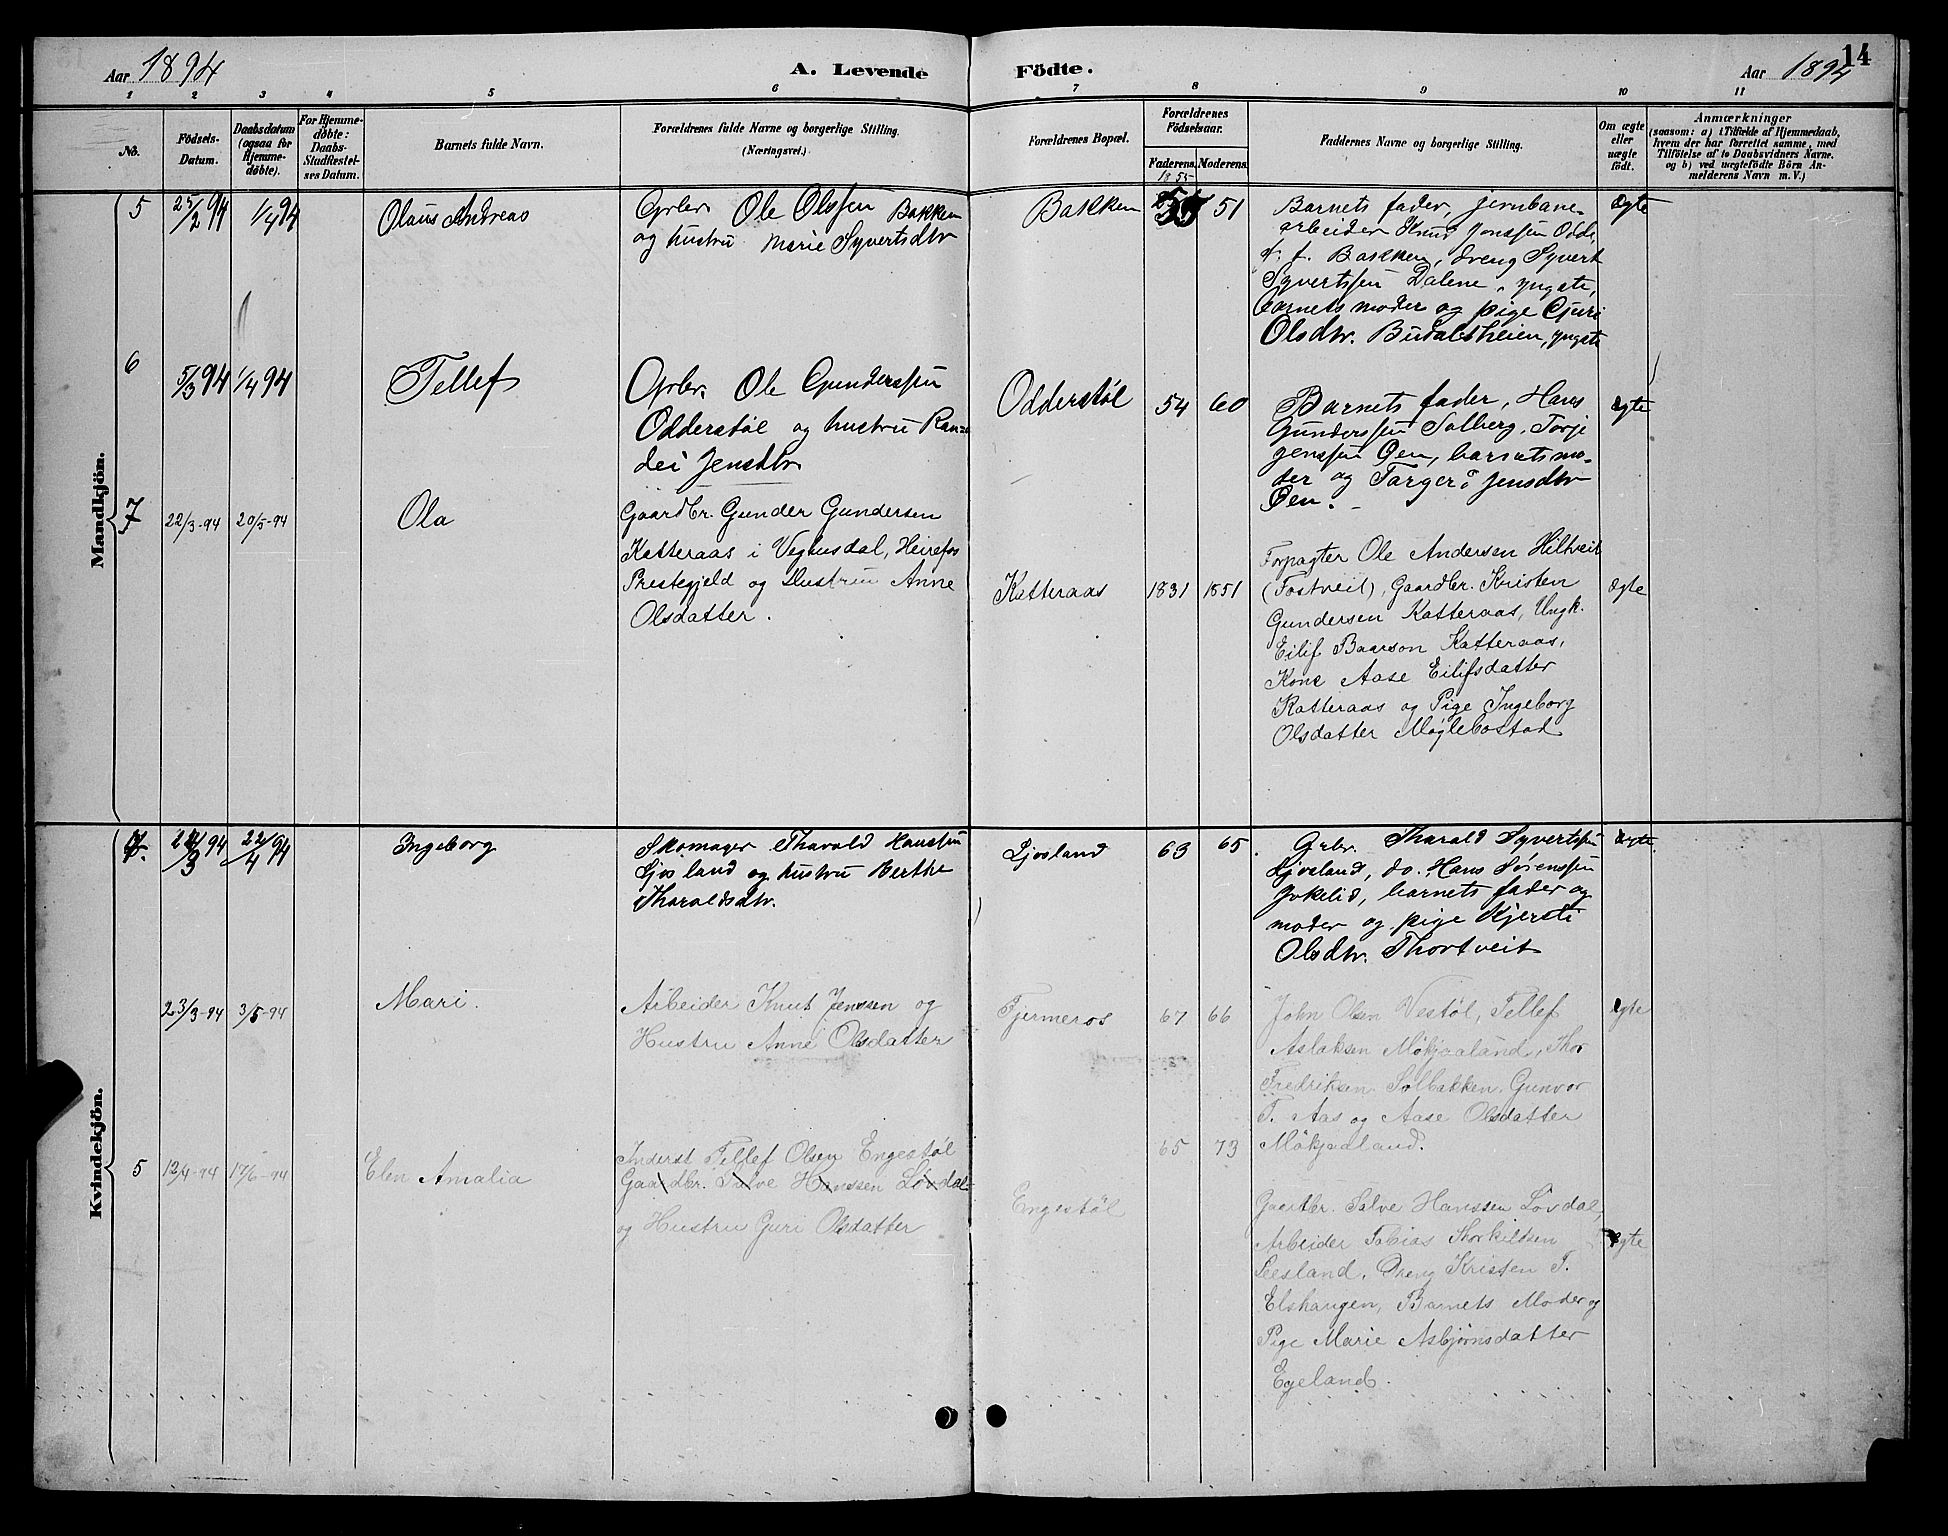 Aar 1894
A. Levende
Födte.
Aar 1894
14
1 2 3 4 5 6 7 8 9 10 11
No.
Födsels-Datum.
Daabsdatum (ogsaa for Hjemme-döbte).
For Hjemme-döbte: Daabs-Stadfæstel-ses Datum.
Barnets fulde Navn.
Forældrenes fulde Navne og borgerlige Stilling.
(Næringsvei.)
Forældrenes Bopæl.
Forældrenes Födselsaar.
Faderens. Moderens.
Faddernes Navne og borgerlige Stilling.
Om ægte eller uægte födt.
Anmærkninger
(saasom: a) i Tilfælde af Hjemmedaab,
hvem der har forrettet samme, med
Tilföielse af to Daabsvidners Navne.
og b) ved uægtefödte Börn An-
melderens Navn m. V.)
Mandkjön.
5 25/2 94 1/4 94 Olaus Andreas
Grbr. Ole Olssen Bakken
og hustru Marie Syvertsdtr
Bakken 1855 55 51
Barnets fader, jernbane-
arbeider Knud Jonssen Odde,
f. f. Bakken, dreng Syvert
Syvertssen Dalene, yngste,
barnets moder og pige Guri
Olsdtr. Budalsheien, yngste
Ægte
6 5/3 94 1/4 94 Tellef
Grbr. Ole Gunderssen
Odderstøl og hustru Ran-
dei Jensdtr
Odderstøl 54 60
Barnets fader, Hans
Gunderssen Solberg, Torje
Jenssen Øen, barnets mo-
der og Targer Jensdtr
Øen.
ægte
7 22/3-94 20/5-94 Ola
Gaardbr. Gunder Gundersen
Katteraas i Veghusdal, Heirefos
Prestegjeld og Hustru Anne
Olsdatter.
Katteraas 1831 1851
Forpagter Ole Andersen Hiltveit
(Fostveit), Gaardbr. Kristen
Gundersen Katteraas, Ungk.
Eilif Baarson Katteraas,
Kone Aase Eilifsdatter
Katteraas og Pige Ingeborg
Olsdatter Møglebostad
Ægte
Kvindekjön.
22/4 94 Ingeborg
Skomager Tharald Hanssen
Ljosland og hustru Berthe
Tharaldsdtr.
Ljosland 63 65.
Grbr. Tharald Syvertssen
Ljosland, do. Hans Sørenssen
Jokelid, barnets fader og
moder og pige Kjersti
Olsdtr. Thortveit
Ægte.
23/3-94 3/5-94 Mari.
Arbeider Knut Jenssen og
Hustru Anne Olsdatter
Tjermeros 67 66
John Olsen Vestøl, Tellef
Aslaksen Møkjaaland, Thor
Fredriksen Solbakken. Gunvor
T. Aas og Aase Olsdatter
Møkjaaland.
Ægte
5 12/4-94 17/6-94 Elen Amalia
Inderst Tellef Olsen Engestøl
Gaardbr. Salve Hanssen Løvdal
og Hustru Guri Olsdatter
Engestøl 65 73
Gaardbr. Salve Hanssen Løvdal,
Arbeider Tobias Thorkildsen
Seesland, Dreng Kristen T.
Elshaugen, Barnets Moder og
Pige Marie Asbjørnsdatter
Egeland.
Ægte